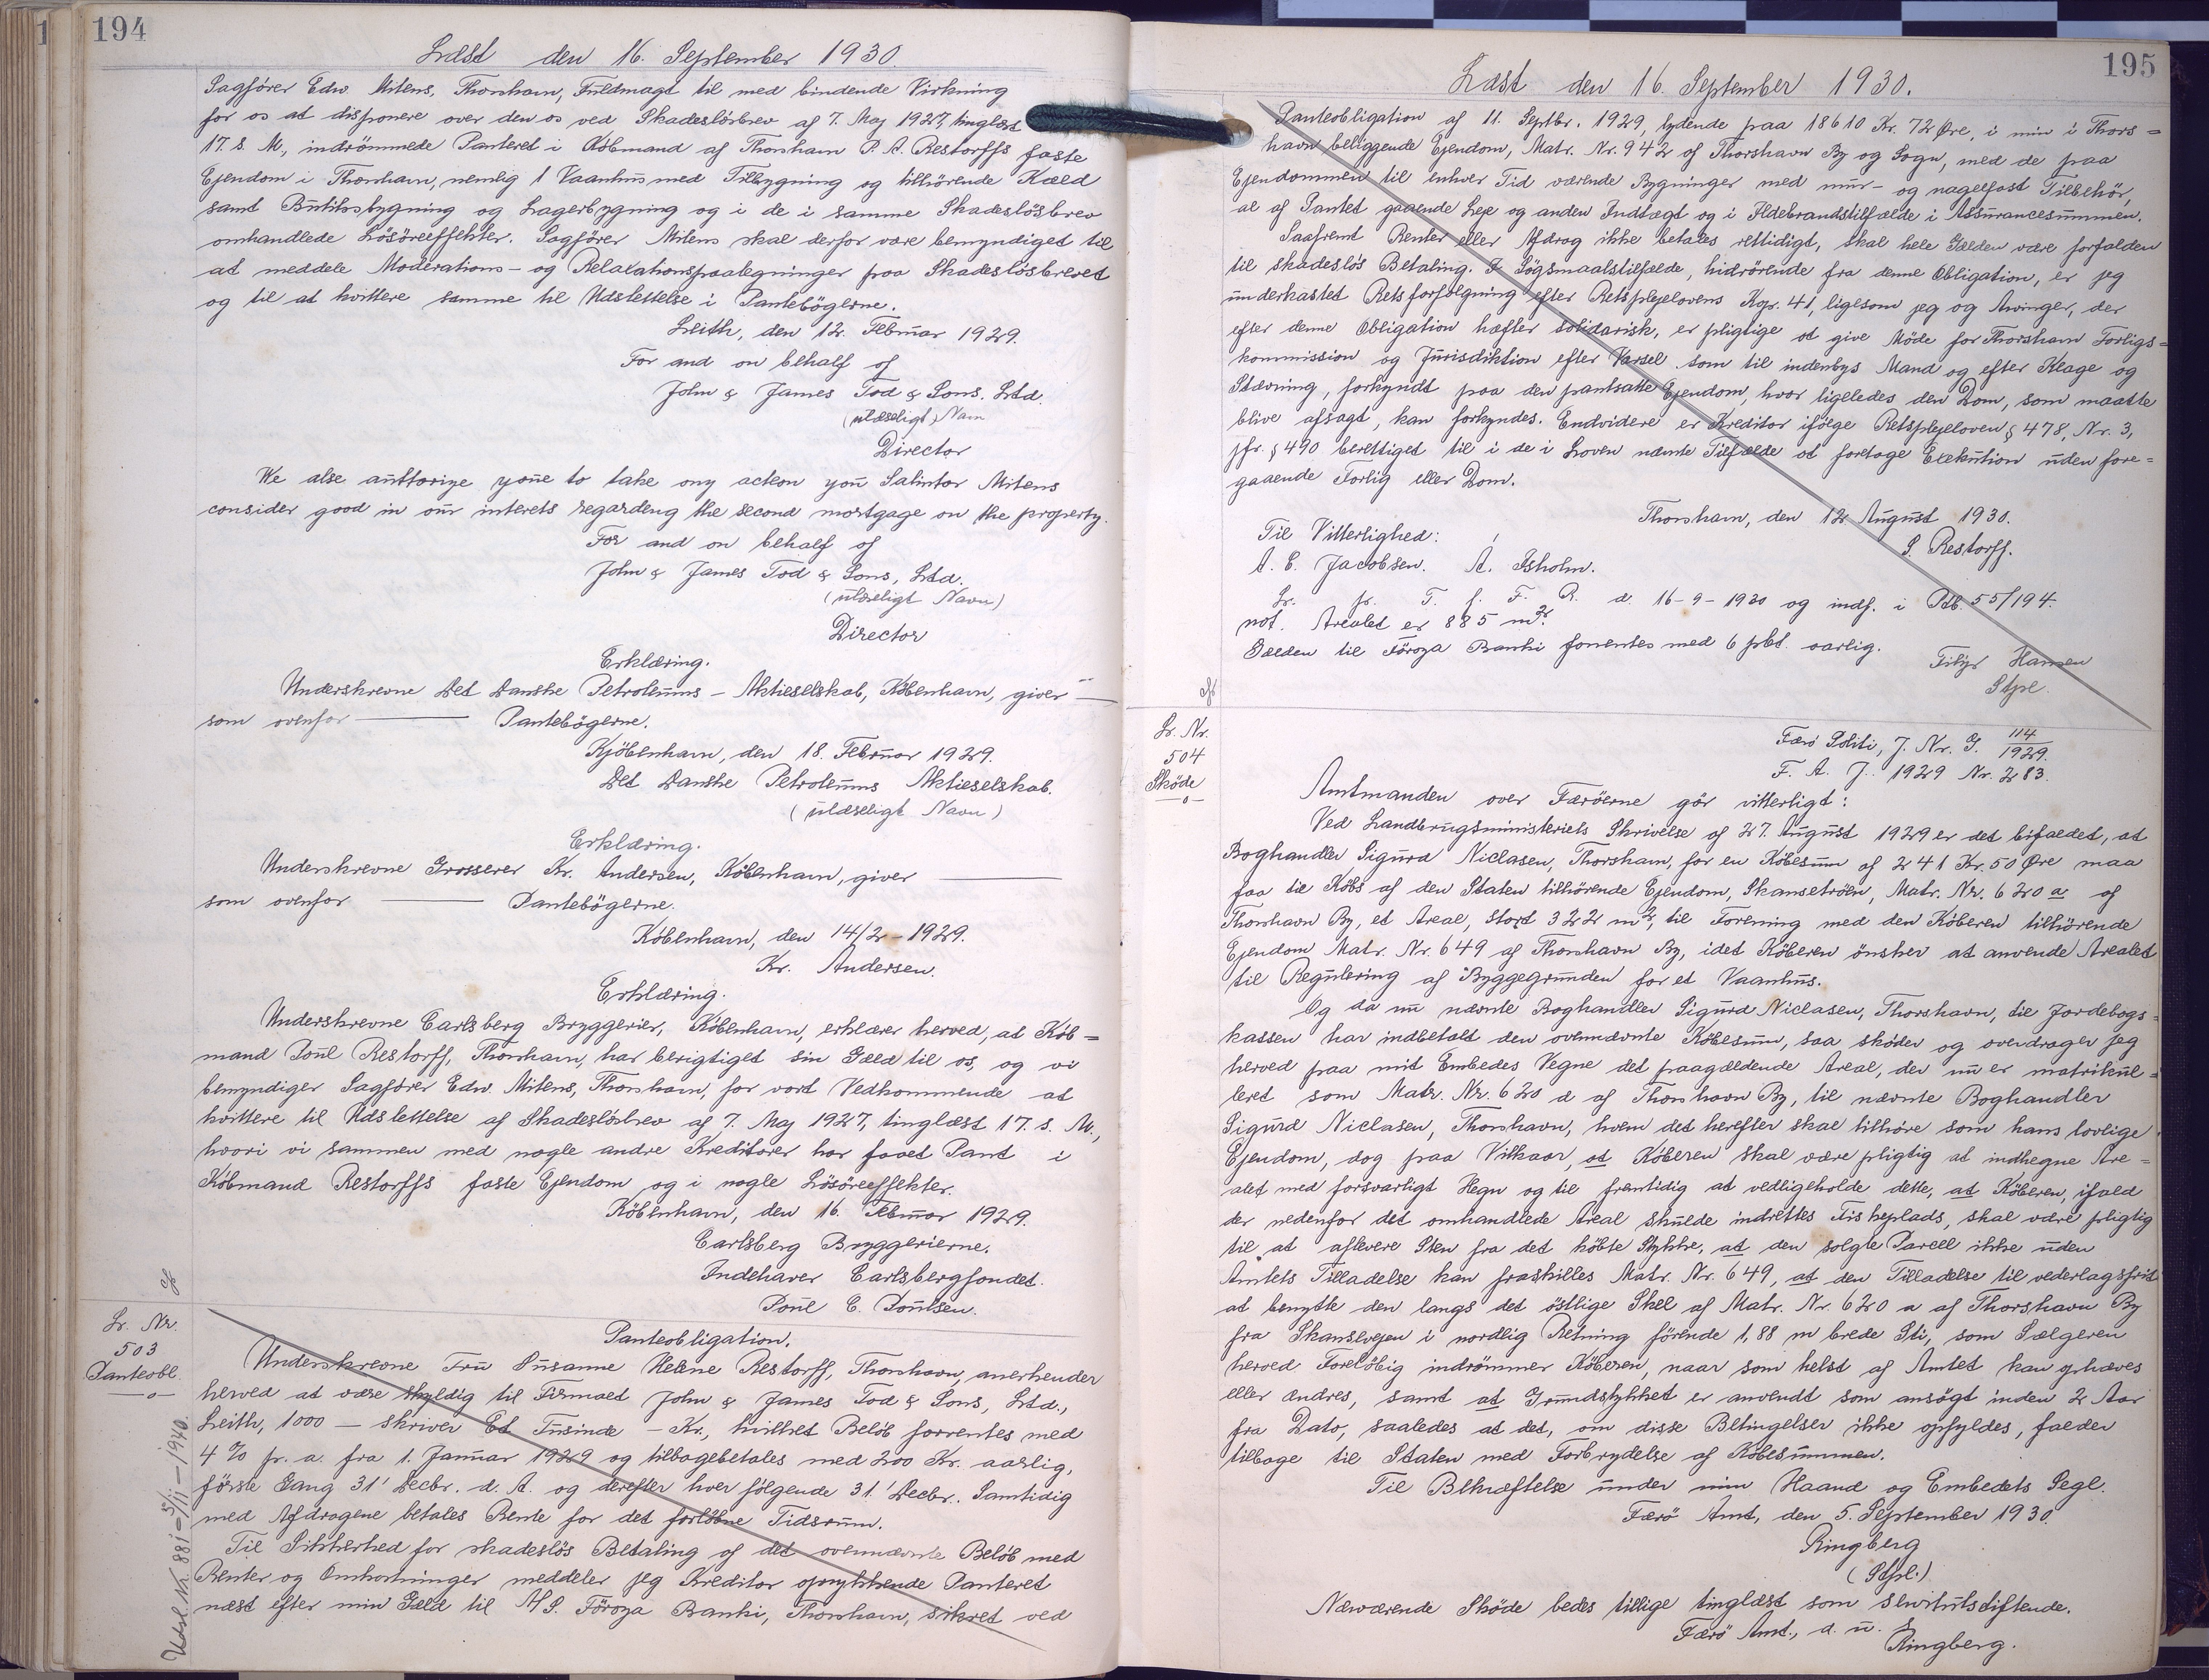 194
Læst den 16. September 1930.
Sagfører Edw. Mitens, Thorshavn, Fuldmagt til med bindende Virkning
for os at disponere over den os ved Skadesløsbrev af 7. Maj 1927, tinglæst
17. s. M., indrømmede Panteret i Købmand af Thorshavn P. A. Restorffs faste
Ejendom i Thorshavn, nemlig 1 Vaanhus med Tilbygning og tilhörende Kæld
samt Butiksbygning og Lagerbygning og i de i samme Skadeslösbrev
omhandlede Lösöreeffekter. Sagfører Mitens skal derfor være bemyndiget til
at meddele Moderations- og Relaxationspaategninger paa Skadeslösbrevet
og til at kvittere samme til Udslettelse i Pantebögerne.
Leith, den 12. Februar 1929.
For and on behalf of
John & James Tod & Sons, Ltd.
(ulæseligt) Navn
Director
We alse auttorize youe to take ony action you Salintor Mitens
consider good in our interets regardeng the second mortgage on the property.
For and on behalf of
John & James Tod & Sons, Ltd.
(ulæseligt Navn)
Director
Erklæring.
Underskrevne Det Danske Petroleums-Aktieselskab, København, giver —
som ovenfor — Pantebögerne.
Kjöbenhavn, den 18. Februar 1929.
Det Danske Petroleums Aktieselskab.
(ulæseligt Navn)
Erklæring.
Underskrevne Grosserer Kr. Andersen, København, giver —
som ovenfor — Pantebögerne.
København, den 14/2-1929.
Kr. Andersen.
Erklæring.
Underskrevne Carlsberg Bryggerier, København, erklærer herved, at Køb=
mand Poul Restorff, Thorshavn, har berigtiget sin Gæld til os, og vi
bemyndiger Sagfører Edw. Mitens, Thorshavn, for vort Vedkommende at
kvittere til Udslettelse af Skadeslösbrev af 7. Maj 1927, tinglæst 17. s. M.,
hvori vi sammen med nogle andre Kreditorer har faaet Pant i
Købmand Restorffs faste Ejendom og i nogle Lösöreeffekter.
København, den 16. Februar 1929.
Carlsberg Bryggerierne.
Indehaver Carlsbergfondet.
Poul C. Poulsen.
Lr. Nr.
503
Panteobl.
—o—
Panteobligation.
Underskrevne Fru Susanne Helene Restorff, Thorshavn, anerkender
herved at være skyldig til Firmaet John & James Tod & Sons, Ltd.,
Leith, 1000 — skriver Et Tusinde — Kr., hvilket Beløb forrentes med
4 % p. a. fra 1. Januar 1929 og tilbagebetales med 200 Kr. aarlig,
förste Gang 31' Decbr. d. A. og derefter hver fölgende 31' Decbr. Samtidig
med Afdragene betales Rente for det forløbne Tidsrum.
Til Sikkerhed for skadeslös Betaling af det ovennævnte Beløb med
Renter og Omkostninger meddeler jeg Kreditor oprykkende Panteret
næst efter min Gæld til A/S. Föroya Banki, Thorshavn, sikret ved
Udsl. Nr. 881 - 5/11-1940.
195
Læst den 16. September 1930.
Panteobligation af 11. Septbr. 1929, lydende paa 18610 Kr. 72 Øre, i min i Thors=
havn beliggende Ejendom, Matr. Nr. 942 af Thorshavn By og Sogn, med de paa
Ejendommen til enhver Tid værende Bygninger med mur- og nagelfast Tilbehör,
al af Pantet gaaende Leje og anden Indtægt og i Ildebrandstilfælde i Assurancesummen.
Saafremt Renter eller Afdrag ikke betales rettidigt, skal hele Gælden være forfalden
til skadeslös Betaling. I Sögsmaalstilfælde, hidrörende fra denne Obligation, er jeg
underkastet Retsforfølgning efter Retsplejelovens Kap. 41, ligesom jeg og Arvinger, der
efter denne Obligation hæfter solidarisk, er pligtige at give Möde for Thorshavn Forligs=
kommission og Jurisdiktion efter Varsel som til indenbys Mand og efter Klage og
Stævning, forkyndt paa den pantsatte Ejendom, hvor ligeledes den Dom, som maatte
blive afsagt, kan forkyndes. Endvidere er Kreditor ifölge Retsplejeloven § 478, Nr. 3,
jfr. § 490 berettiget til i de i Loven nævnte Tilfælde at foretage Exekution uden fore=
gaaende Forlig eller Dom.
Thorshavn, den 12 August 1930.
S. Restorff.
Til Vitterlighed:
A. C. Jacobsen. A. Isholm.
Lr. pr. T. f. F. R. d. 16-9-1930 og indf. i Pdb. 55/194.
not. Arealet er 885 m².
Gælden til Föroya Banki forrentes med 6 pCt. aarlig.
Hansen
Stpl.
Lr. Nr.
504
Skøde
—o—
Færö Politi, J. Nr. G. 114/1929.
F. A. J. 1929 Nr. 283.
Amtmanden over Færöerne gör vitterligt:
Ved Landbrugsministeriets Skrivelse af 27. August 1929 er det bifaldet, at
Boghandler Sigurd Niclasen, Thorshavn, for en Købesum af 241 Kr. 50 Øre maa
faa til Købs af den Staten tilhörende Ejendom, Skansetröen, Matr. Nr. 620 a af
Thorshavn By, et Areal, stort 322 m², til Forening med den Köberen tilhörende
Ejendom Matr. Nr. 649 af Thorshavn By, idet Köberen önsker at anvende Arealet
til Regulering af Byggegrunden for et Vaanhus.
Og da nu nævnte Boghandler Sigurd Niclasen, Thorshavn, til Jordebogs=
kassen har indbetalt den ovennævnte Købesum, saa skøder og overdrager jeg
herved paa mit Embedes Vegne det paagældende Areal, der nu er matrikul=
leret som Matr. Nr. 620 d af Thorshavn By, til nævnte Boghandler
Sigurd Niclasen, Thorshavn, hvem det herefter skal tilhøre som hans lovlige
Ejendom, dog paa Vilkaar, at Köberen skal være pligtig at indhegne Are=
alet med forsvarligt Hegn og til fremtidig at vedligeholde dette, at Köberen, ifald
der nedenfor det omhandlede Areal skulde indrettes Fiskeplads, skal være pligtig
til at aflevere Sten fra det købte Stykke, at den solgte Parcel ikke uden
Amtets Tilladelse kan fraskilles Matr. Nr. 649, at den Tilladelse til vederlagsfrit
at benytte den langs det östlige Skel af Matr. Nr. 620 a af Thorshavn By
fra Skansevejen i nordlig Retning förende 1,88 m brede Sti, som Sælgeren
herved Foreløbig indrømmer Køberen, naar som helst af Amtet kan ophæves
eller ændres, samt at Grundstykket er anvendt som ansögt inden 2 Aar
fra Dato, saaledes at det, om disse Betingelser ikke opfyldes, falder
tilbage til Staten med Forbrydelse af Købesummen.
Til Bekræftelse under min Haand og Embedets Segl.
Færö Amt, den 5. September 1930.
Ringberg
(Stpl.)
Nærværende Skøde bedes tillige tinglæst som servitutstiftende.
Færö Amt., d. u. s.
Ringberg.